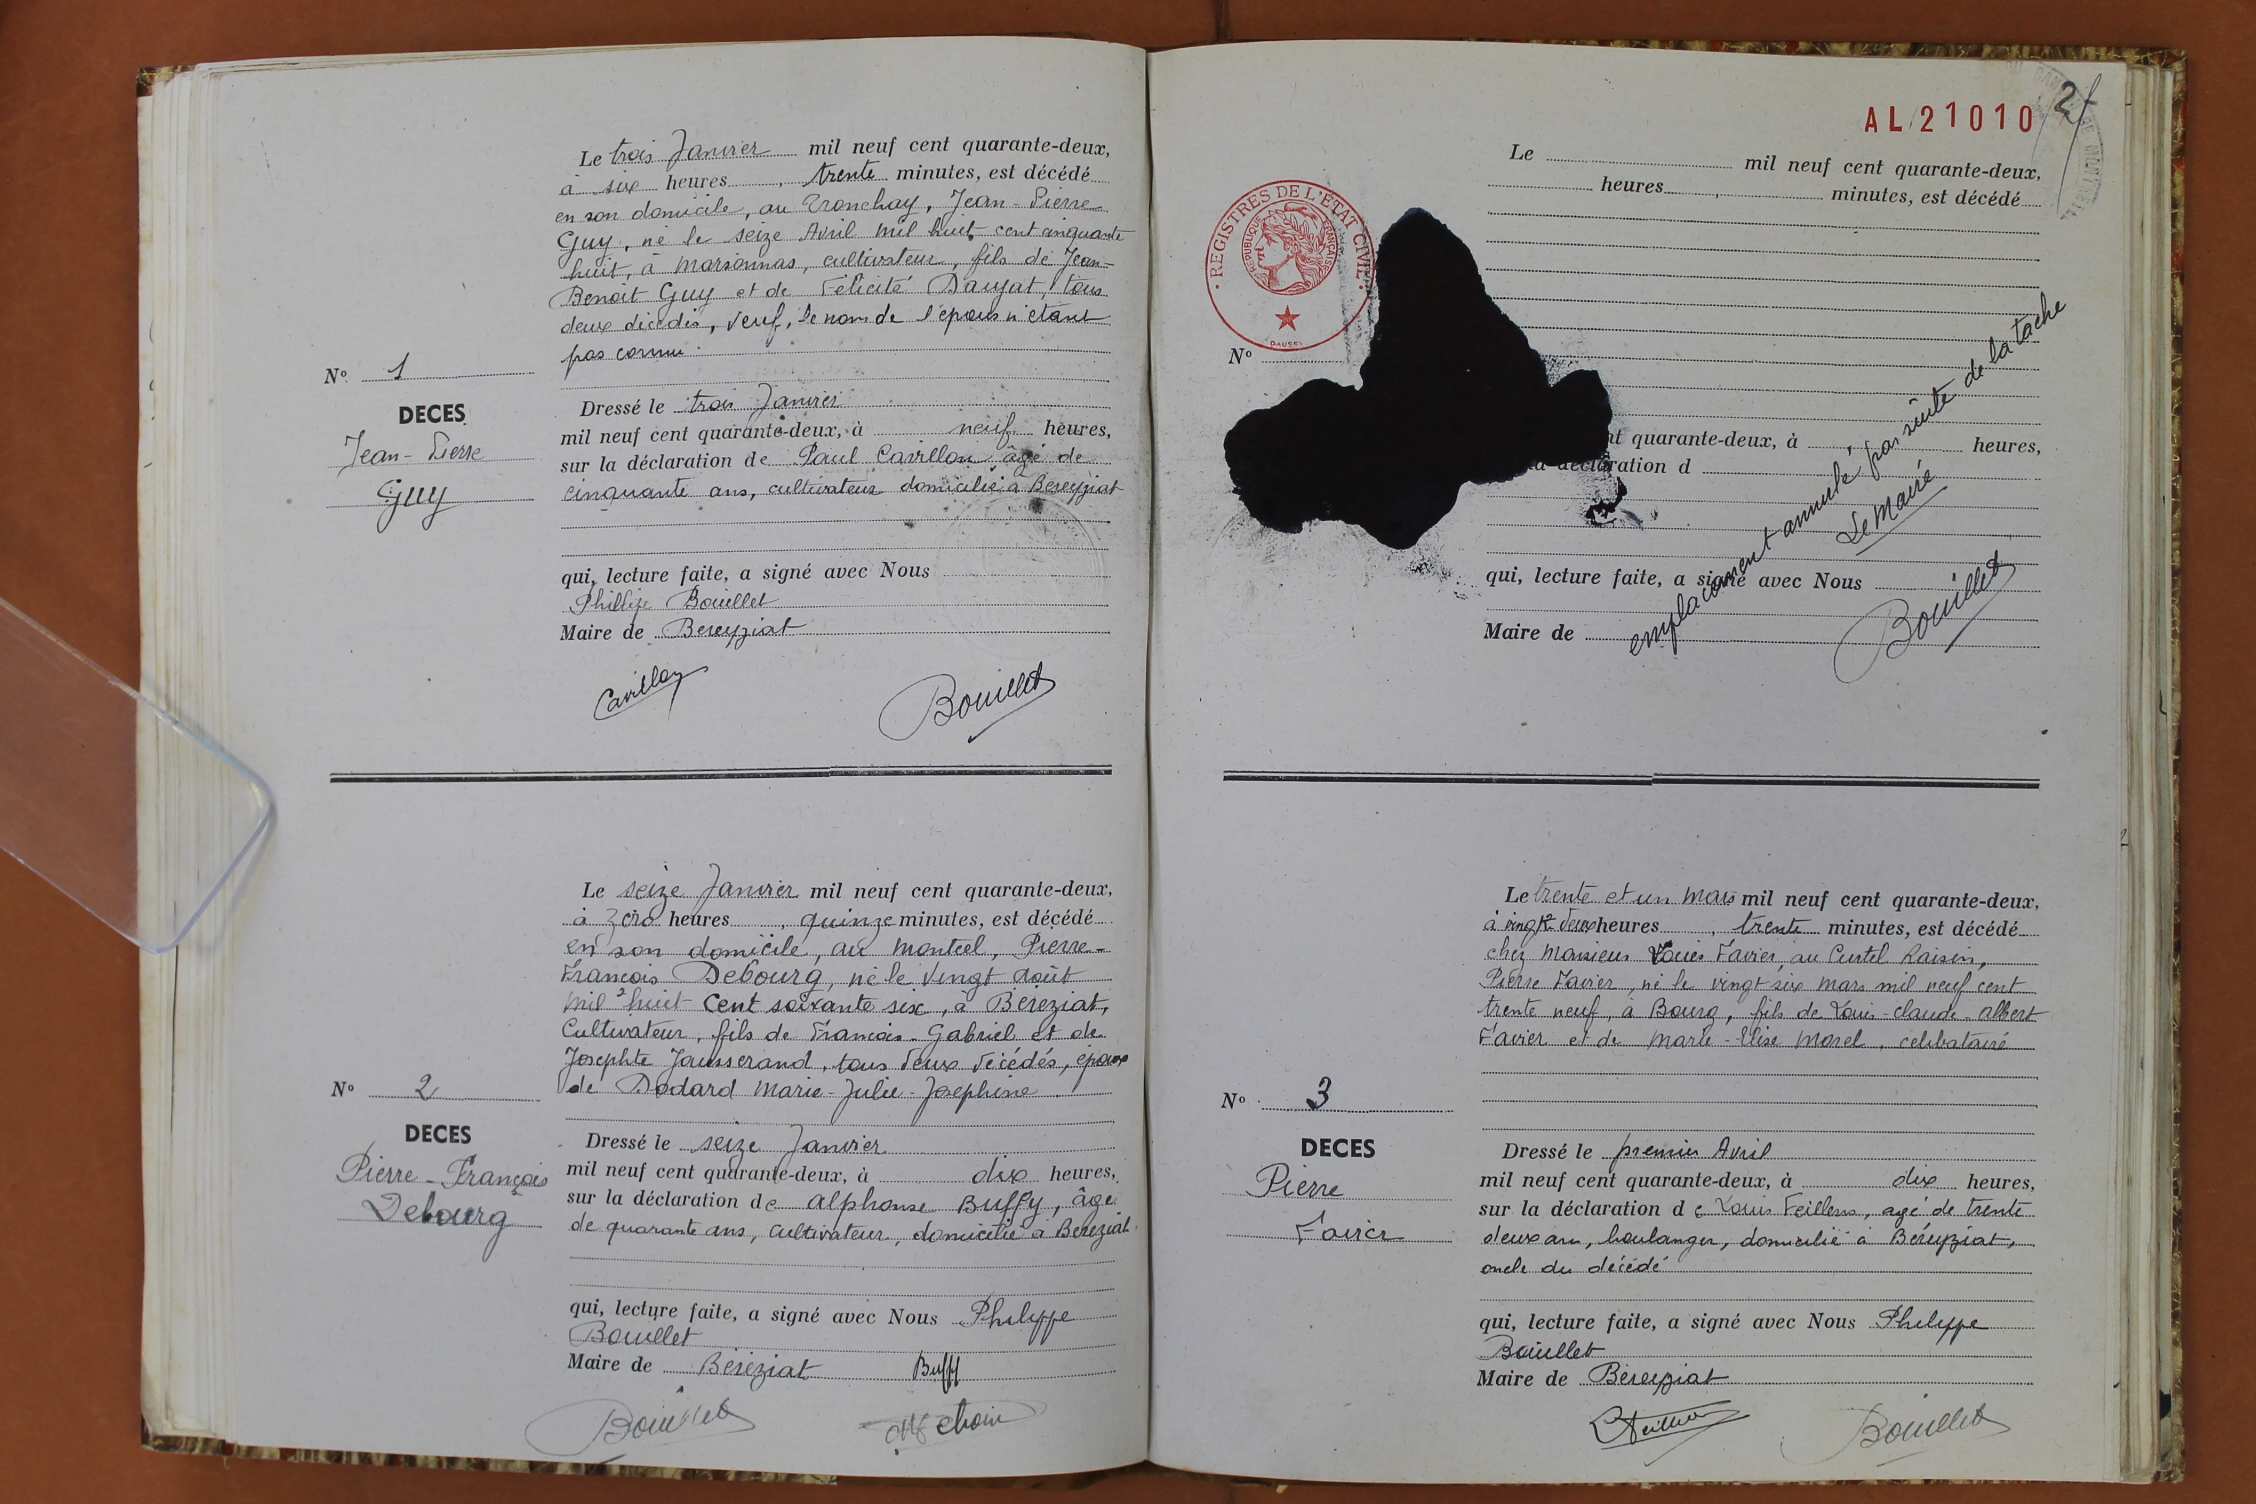 Le trois Janvier mil neuf cent quarante-deux,
à six heures, trente minutes, est décédé
en son domicile, au Tronchay, Jean-Pierre
Guy, né le seize Avril mil huit cent cinquante
huit, à Marsonnas, cultivateur, fils de Jean-
Benoit Guy et de Félicité Daujat, tous
deux décédés, veuf, le nom de l'épouse n'étant
pas connu.
Nº 1
DECES
Jean-Pierre
Guy
Dressé le trois Janvier
mil neuf cent quarante-deux, à neuf heures,
sur la déclaration de Paul Cavillon âgé de
cinquante ans, cultivateur domicilié à Bereyziat
qui, lecture faite, a signé avec Nous
Phillipe Bouillet
Maire de Bereyziat
Cavillon
Bouillet
Le seize Janvier mil neuf cent quarante-deux,
à zéro heures, quinze minutes, est décédé
en son domicile, au Montcel, Pierre-
François Debourg, né le vingt Août
mil huit cent soixante six, à Béréziat,
Cultivateur, fils de François-Gabriel et de
Josephte Jausserand, tous deux décédés, époux
de Dodard Marie-Julie-Josephine
Nº 2
DECES
Pierre-François
Debourg
Dressé le seize Janvier
mil neuf cent quarante-deux, à dix heures,
sur la déclaration de Alphonse Buffy, âgé
de quarante ans, cultivateur, domicilié à Béréziat
qui, lecture faite, a signé avec Nous Philippe
Bouillet
Maire de Béréziat
Buffy
Bouillet
AL 21010
2
Le mil neuf cent quarante-deux,
heures, minutes, est décédé
REGISTRES DE L'ÉTAT CIVIL
RÉPUBLIQUE FRANÇAISE
DAUSSY
Nº
nt quarante-deux, à heures,
la déclaration d
qui, lecture faite, a signé avec Nous
Maire de
emplacement annulé par suite de la tache
Le Maire
Bouillet
Le trente et un Mars mil neuf cent quarante-deux,
à vingt deux heures, trente minutes, est décédé
chez Monsieur Louis Favier, au Curtel Raisin,
Pierre Favier, né le vingt six mars mil neuf cent
trente neuf, à Bourg, fils de Louis-Claude-Albert
Favier et de Marie-Elise Morel, célibataire
Nº 3
DECES
Pierre
Favier
Dressé le premier Avril
mil neuf cent quarante-deux, à dix heures,
sur la déclaration de Louis Feillens, agé de trente
deux ans, boulanger, domicilié à Béreyziat,
oncle du décédé
qui, lecture faite, a signé avec Nous Philippe
Bouillet
Maire de Béreyziat
Feillens
Bouillet